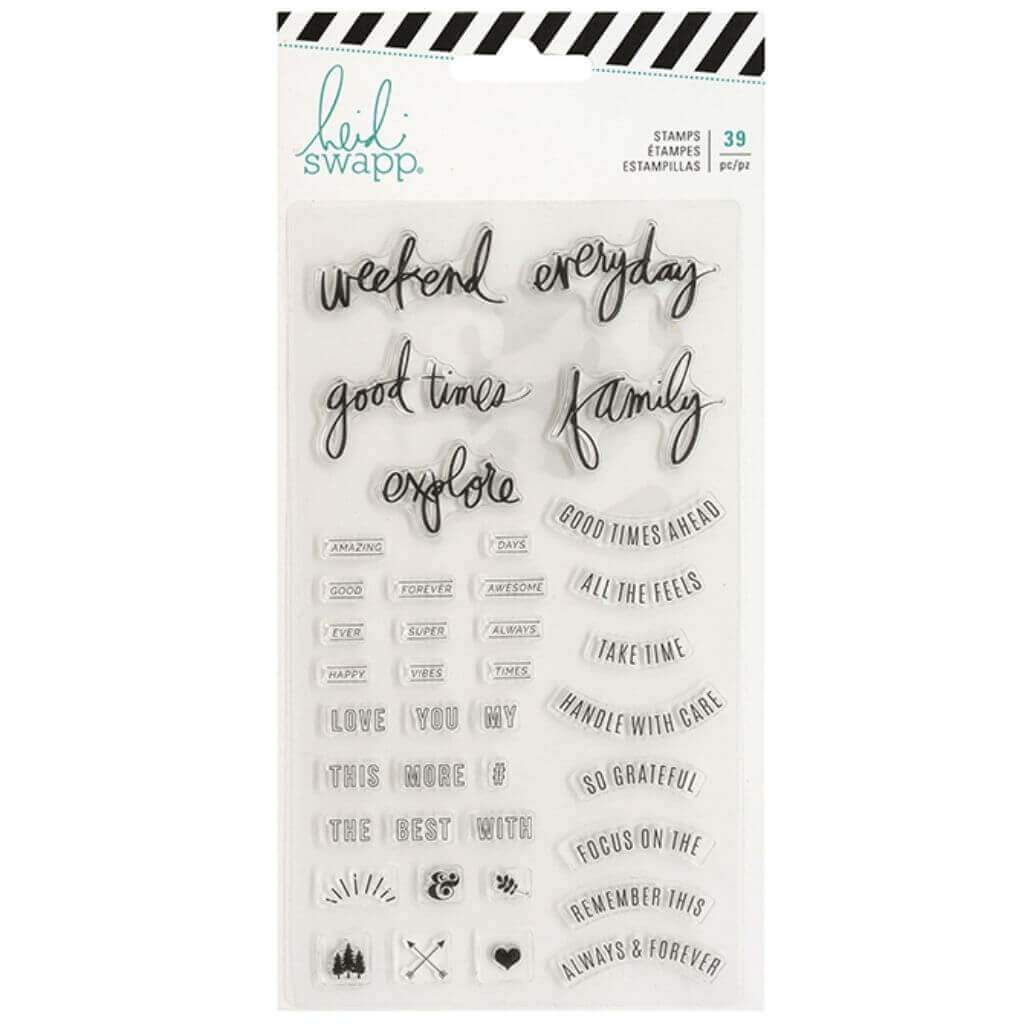 heidi
swapp®
STAMPS
ÉTAMPES
ESTAMPILLAS
39
pc/pz
weekend
everyday
good times
family
explore
AMAZING DAYS
GOOD FOREVER AWESOME
EVER SUPER ALWAYS
HAPPY VIBES TIMES
LOVE YOU MY
THIS MORE #
THE BEST WITH
&
GOOD TIMES AHEAD
ALL THE FEELS
TAKE TIME
HANDLE WITH CARE
SO GRATEFUL
FOCUS ON THE
REMEMBER THIS
ALWAYS & FOREVER